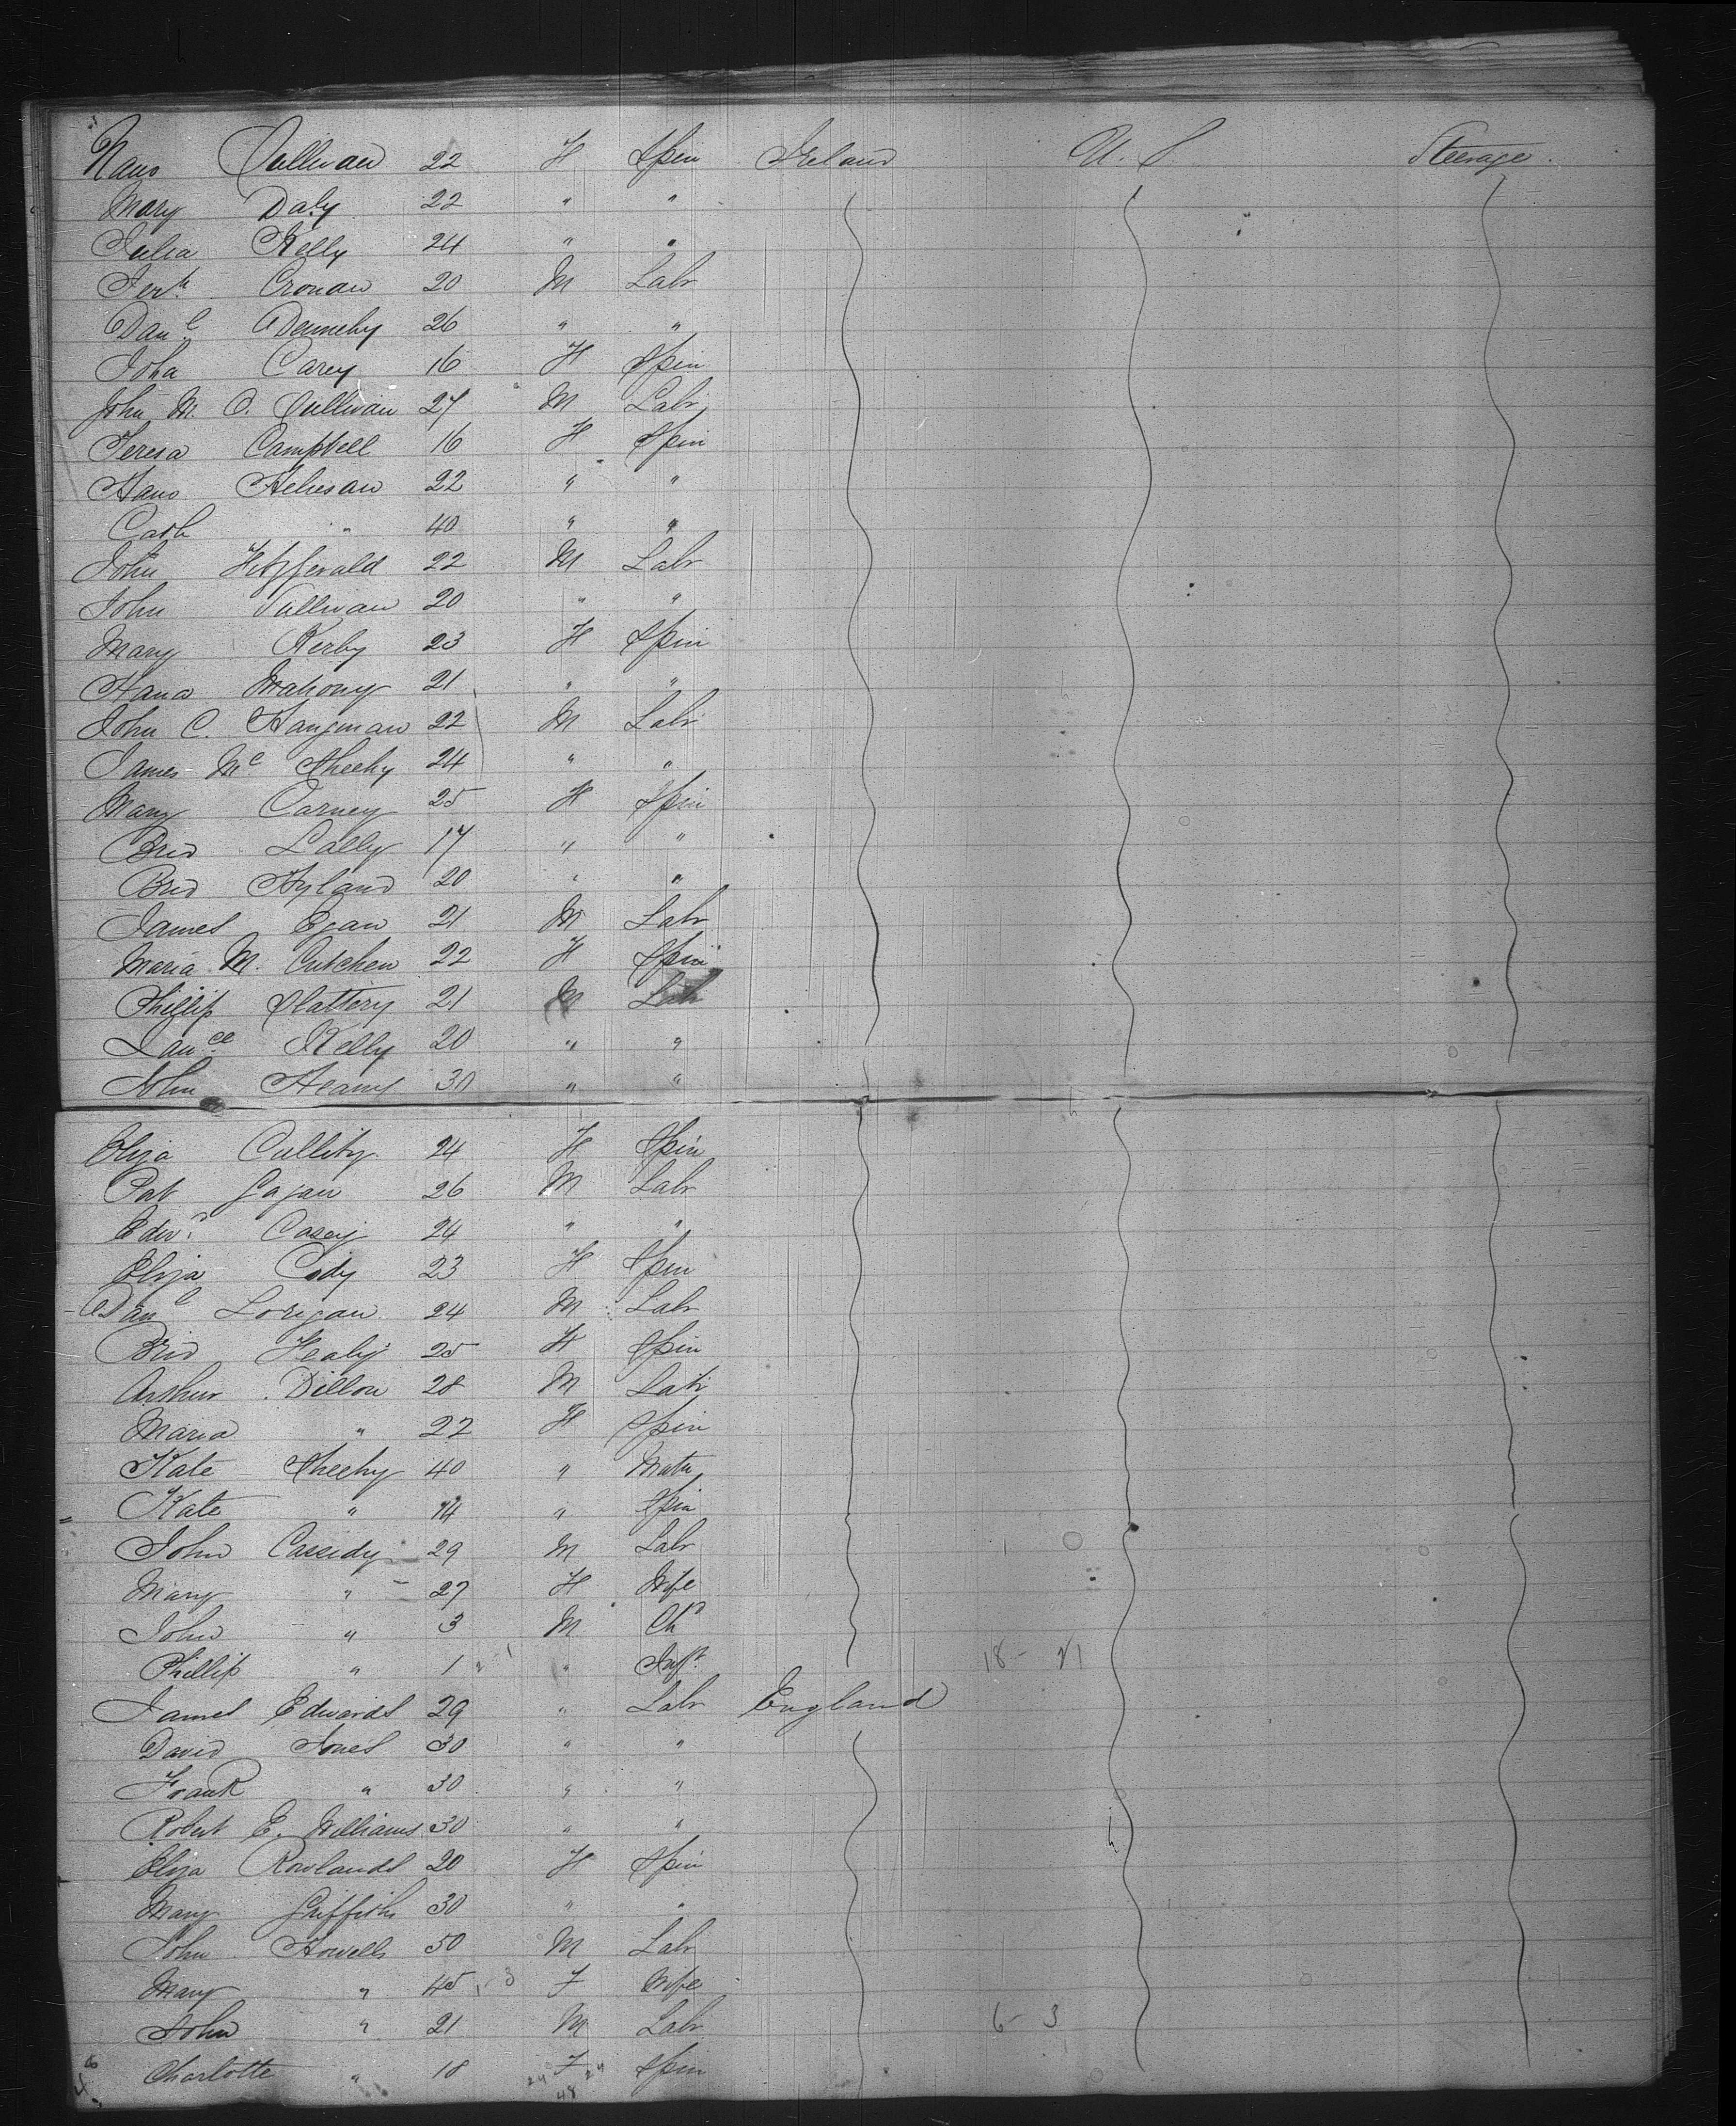 Sullivan 22 F Spin Ireland U. S Steerage
Mary Daly 22 " "
Julia Kelly 24 " "
Jerh Cronan 20 M Labr
Danl Denneby 26 " "
Joha Carey 16 F Spin
John M. O. Sullivan 27 M Labr
Teresa Campbell 16 F Spin
22 " "
Cath " 40 " "
John Fitzgerald 22 M Labr
John Sullivan 20 " "
Mary Kerby 23 F Spin
Hana Mahony 21 " "
John C. Hangman 22 M Labr
James Mc Sheehy 24 " "
Mary Carney 25 F Spin
Brid Lally 17 " "
Brid Hyland 20 " "
James Egan 21 M Labr
Maria M. Cutchen 22 F Spin
Phillip Slattery 21 M Labr
Lauce Kelly 20 " "
John Heany 30 " "
Eliza Cullity 24 F Spin
Pat Gagan 26 M Labr
Edwd Casey 24 " "
Eliza Cody 23 F Spin
Danl Lorigan 24 M Labr
Brid Healy 25 F Spin
Arthur Dillon 28 M Labr
Maria " 22 F Spin
Kate Sheehy 40 " Matn
Kate " 14 " Spin
John Cassidy 29 M Labr
Mary " 27 F Wife
John " 3 M Chd
Phillip " 1 " Inft 18 - 21
James Edwards 29 " Labr England
David Jones 30 " "
Frank " 30 " "
Robert E. Williams 30 " "
Eliza Rowlands 20 F Spin
Mary Griffiths 30 " "
John Howells 50 M Labr
Mary " 45 F Wife
John " 21 M Labr 6 - 3
Charlotte " 18 F Spin
48